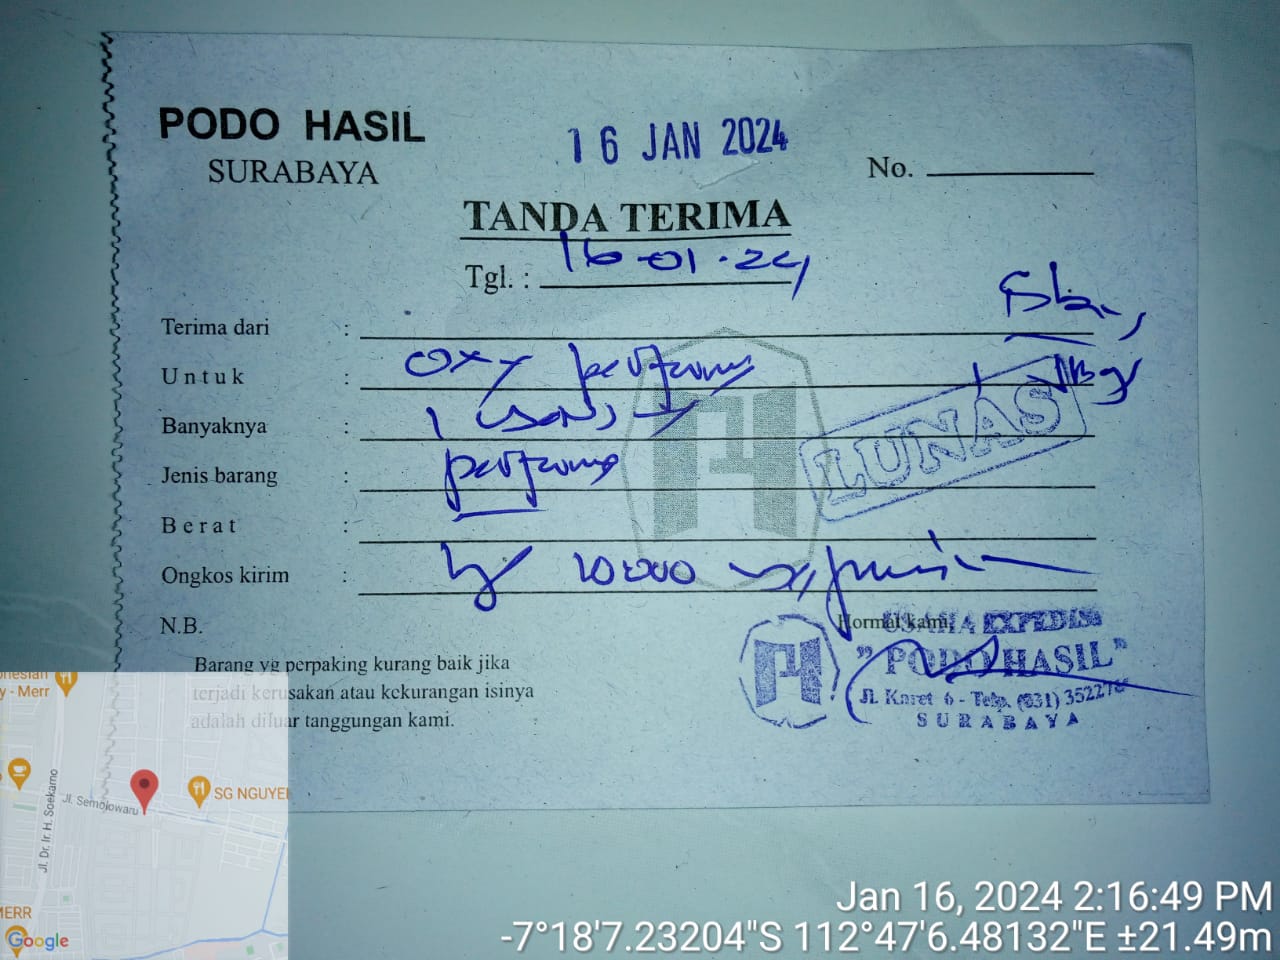 PODO HASIL
SURABAYA
16 JAN 2024
No.
TANDA TERIMA
Tgl. : 16-01-24
Terima dari :
Untuk : OXY parfum
Banyaknya : 1
Jenis barang : parfum
Berat :
Ongkos kirim : 10.000
LUNAS
N.B.
Barang yg perpaking kurang baik jika
terjadi kerusakan atau kekurangan isinya
adalah diluar tanggungan kami.
Hormat kami,
USAHA EXPEDISI
"PODO HASIL"
Jl. Karet 6 - Telp. (031)
SURABAYA
y - Merr
Jl. Dr. Ir. H. Soekarno
Jl. Semolowaru
SG NGUYEN
MERR
Google
Jan 16, 2024 2:16:49 PM
-7°18'7.23204"S 112°47'6.48132"E ±21.49m